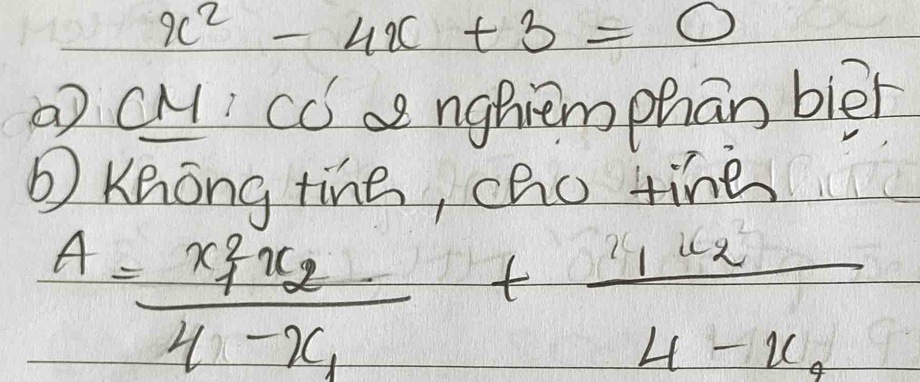 x² - 4x + 3 = 0
a) CM: có 2 nghiệm phân biệt
b) Không tính, cho tính
A = x₁² x₂ / 4 - x₁ + x₁ x₂² / 4 - x₂